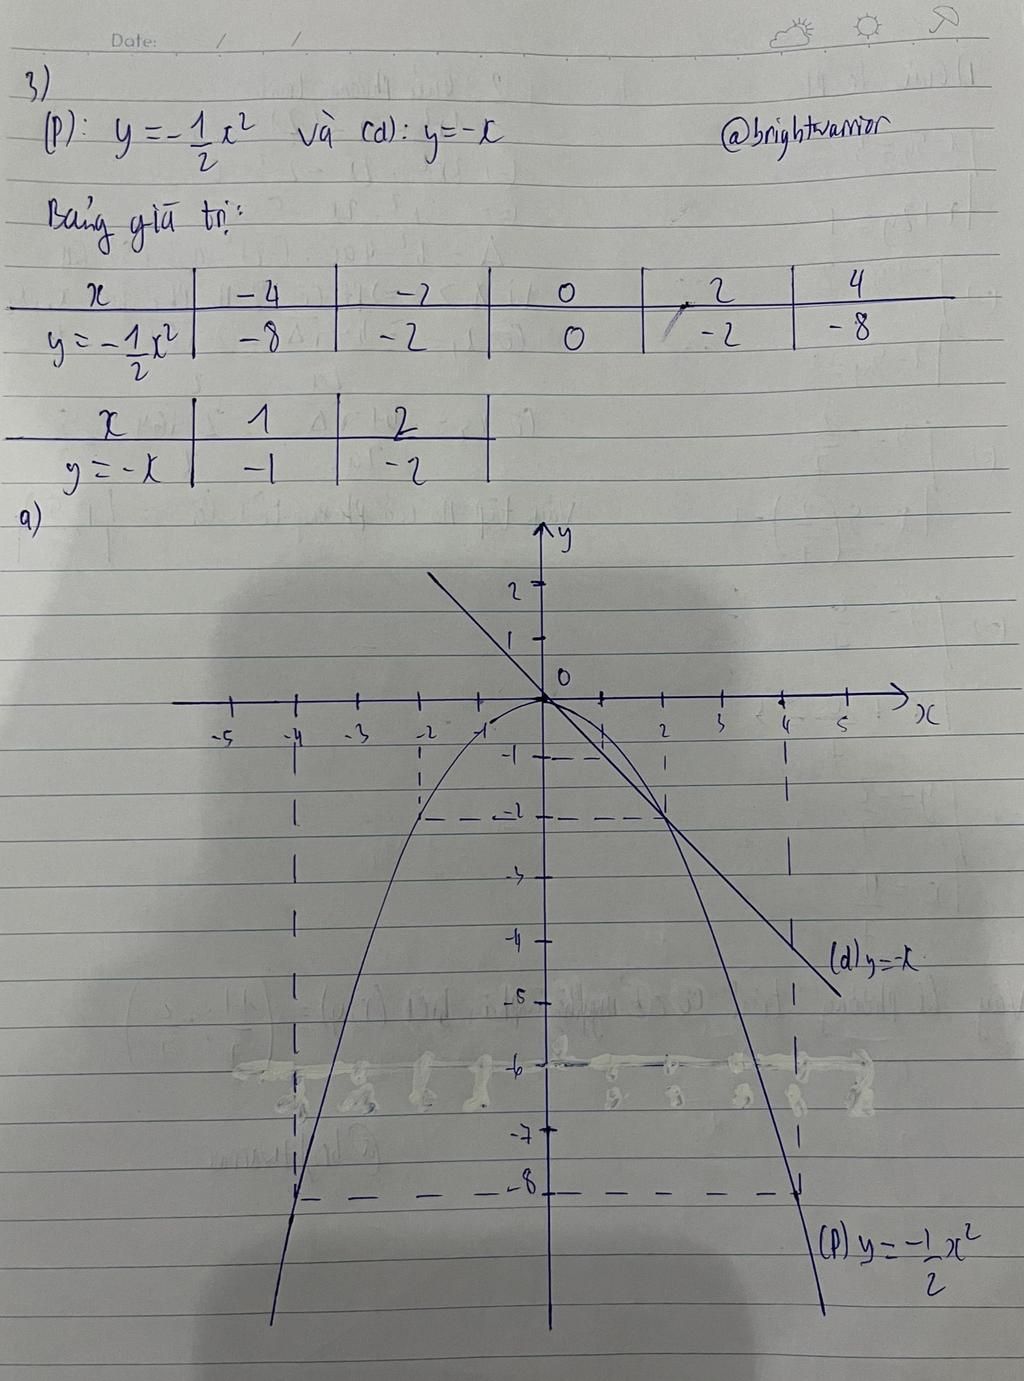 Date: / /
3)
(P): y = -1/2 x² và (d): y = -x @brightwarrior
Bảng giá trị:
x -4 -2 0 2 4
y = -1/2 x² -8 -2 0 -2 -8
x 1 2
y = -x -1 -2
a)
y
2
1
0
-5 -4 -3 -2 -1 2 3 4 5 x
-1
-2
-3
-4
(d) y = -x
-5
-6
-7
-8
(P) y = -1/2 x²